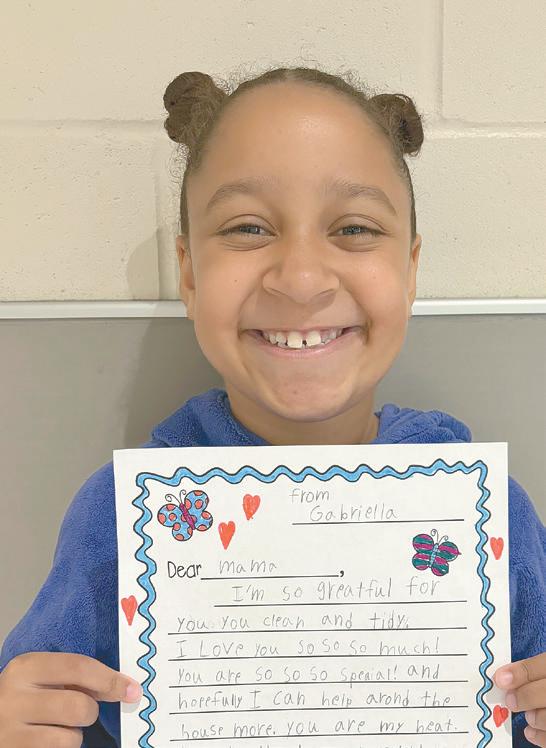 from
Gabriella
Dear mama,
I'm so greatful for
you. you clean and tidy.
I Love you so so so much!
You are so so so speaial! and
hopefully I can help arond the
house more. you are my heat.